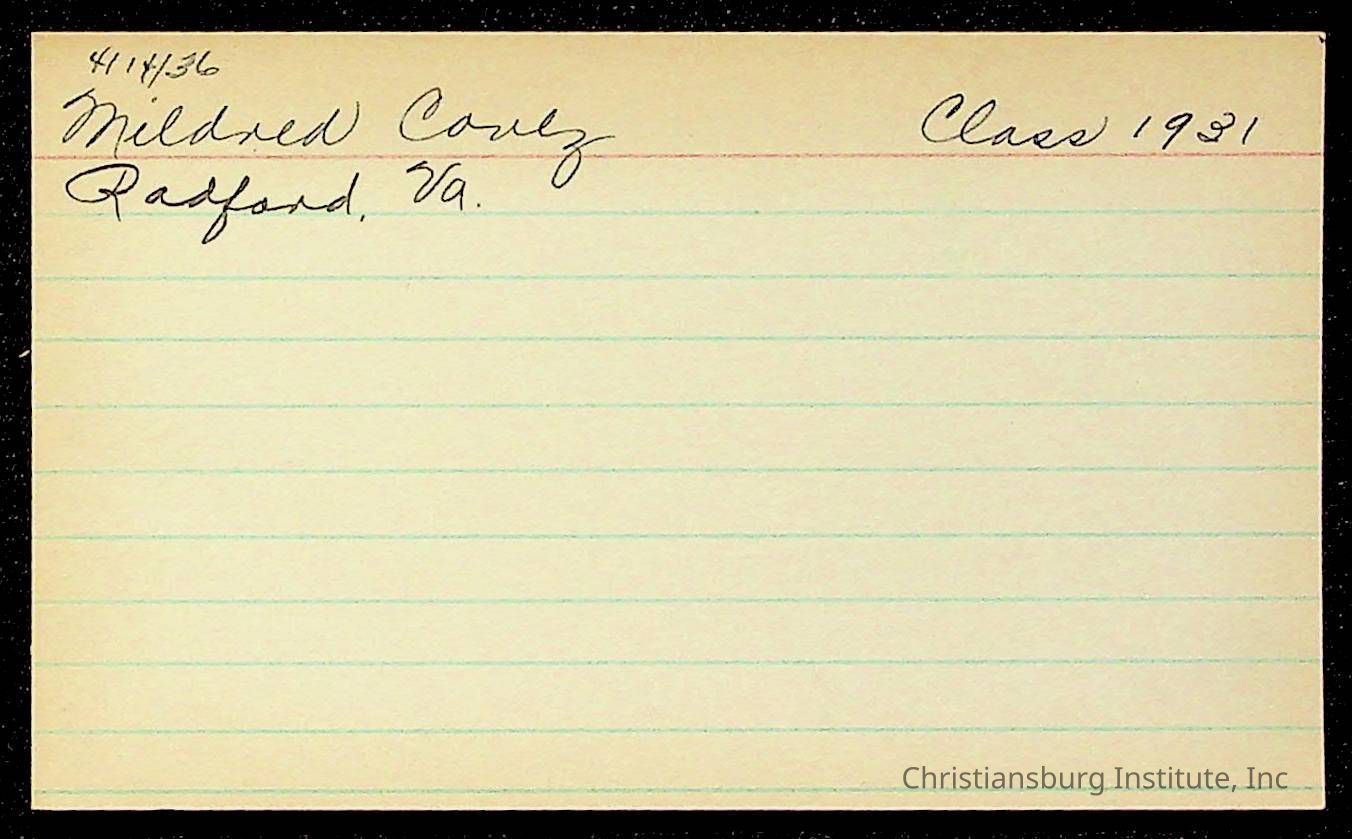 4/14/36
Mildred Class 1931
Radford, Va.
Christiansburg Institute, Inc